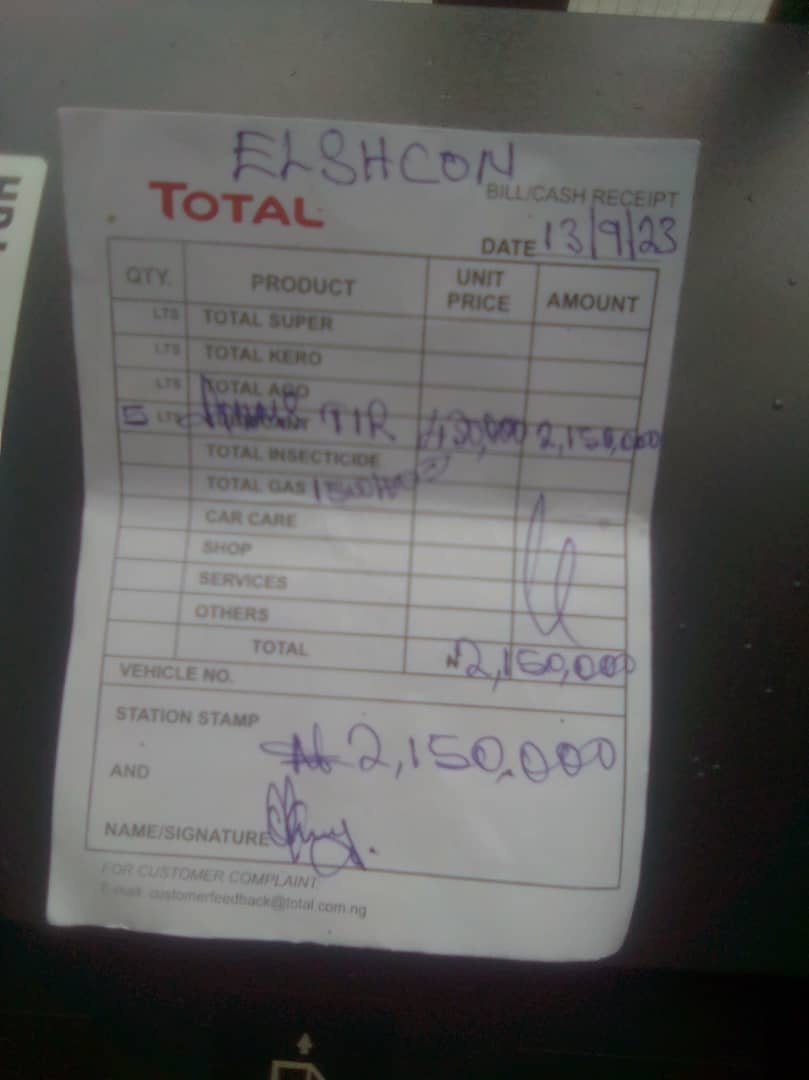 ELSHCON
TOTAL
BILL/CASH RECEIPT
DATE 13/9/23
QTY. PRODUCT UNIT PRICE AMOUNT
LTS TOTAL SUPER
LTS TOTAL KERO
LTS TOTAL AGO
5 LTS TIR 430,000 2,150,000
TOTAL INSECTICIDE
TOTAL GAS
CAR CARE
SHOP
SERVICES
OTHERS
TOTAL ₦2,150,000
VEHICLE NO.
STATION STAMP
₦2,150,000
AND
NAME/SIGNATURE
FOR CUSTOMER COMPLAINT
E-mail: customerfeedback@total.com.ng